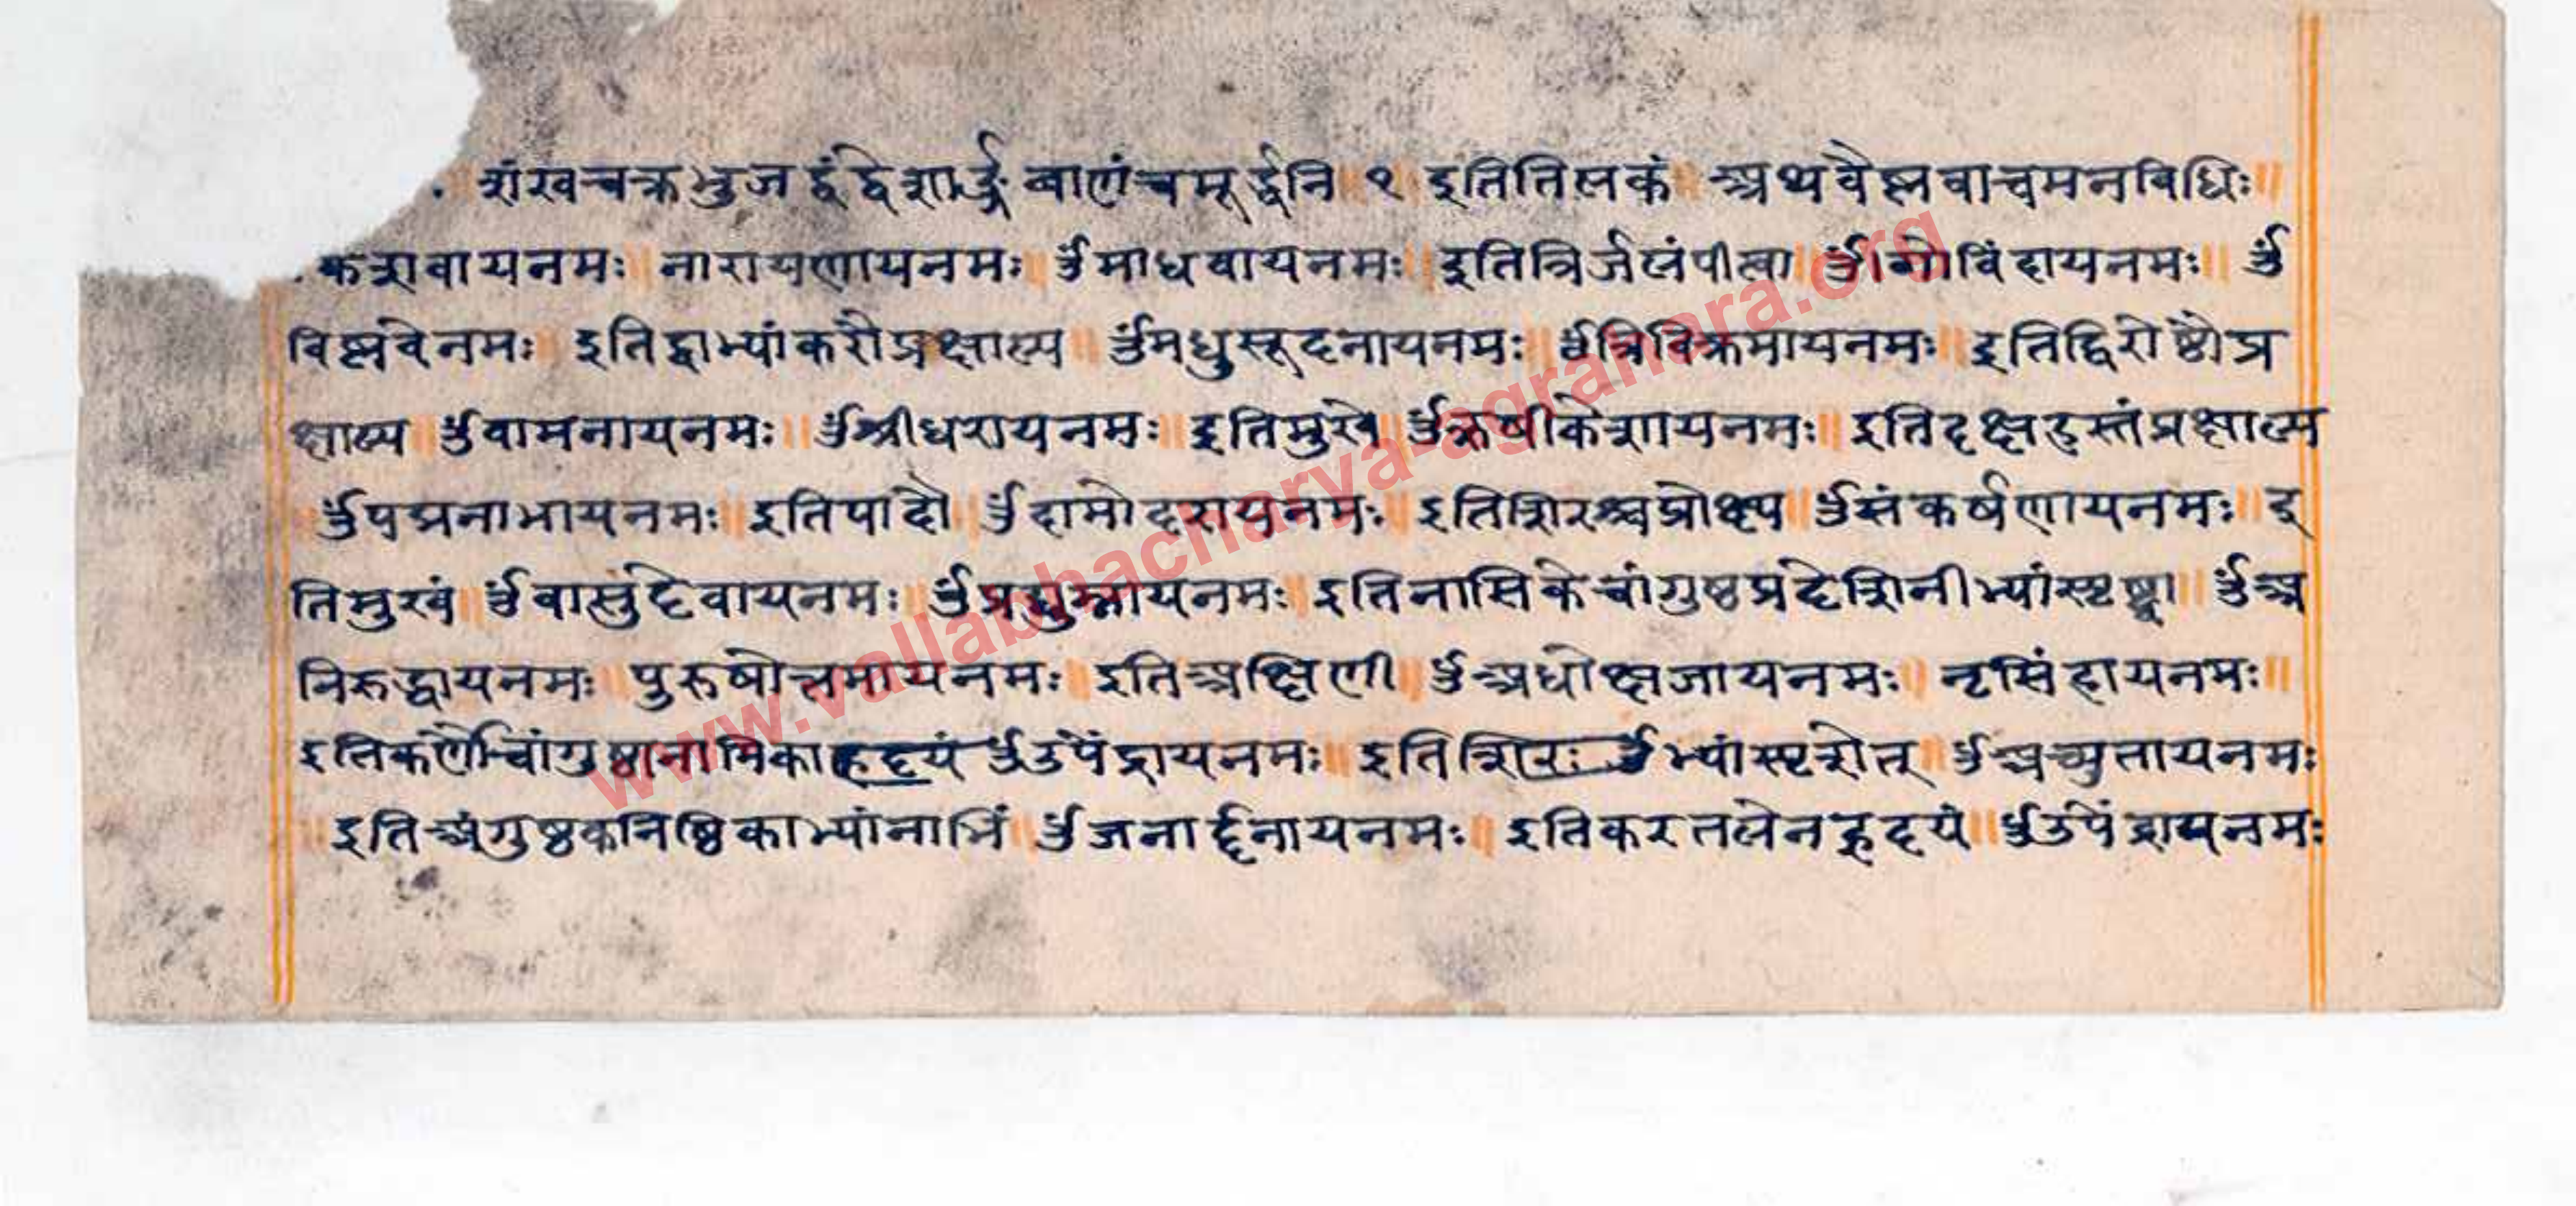 शंखचक्रभुजद्वंद्वेशार्ङ्गबाणंचमूर्द्धनि १ इतितिलकं अथवैष्णवाचमनविधिः॥
केशवायनमः॥ नारायणायनमः॥ ॐमाधवायनमः॥ इतित्रिर्जलंपीत्वा॥ ॐगोविंदायनमः॥ ॐ
विष्णवेनमः॥ इतिद्वाभ्यांकरौप्रक्षाल्य॥ ॐमधुसूदनायनमः॥ ॐत्रिविक्रमायनमः॥ इतिद्विरोष्ठौप्र
क्षाल्य॥ ॐवामनायनमः॥ ॐश्रीधरायनमः॥ इतिमुखे॥ ॐऋषीकेशायनमः॥ इतिदक्षहस्तंप्रक्षाल्य
ॐपद्मनाभायनमः॥ इतिपादौ॥ ॐदामोदरायनमः॥ इतिशिरश्चप्रोक्ष्य॥ ॐसंकर्षणायनमः॥ इ
तिमुखं॥ ॐवासुदेवायनमः॥ ॐप्रद्युम्नायनमः॥ इतिनासिकेचांगुष्ठप्रदेशिनीभ्यांस्पृष्ट्वा॥ ॐअ
निरुद्धायनमः॥ पुरुषोत्तमायनमः॥ इतिअक्षिणी॥ ॐअधोक्षजायनमः॥ नृसिंहायनमः॥
इतिकर्णौचांगुष्ठानामिकाहृदयं ॐउपेंद्रायनमः॥ इतिशिरः ॐभ्यांस्पृशेत्॥ ॐअच्युतायनमः
॥इतिअंगुष्ठकनिष्ठिकाभ्यांनाभिं॥ ॐजनार्दनायनमः॥ इतिकरतलेनहृदयं॥ ॐउपेंद्रायनमः
www.vallabhacharya-agrahara.org